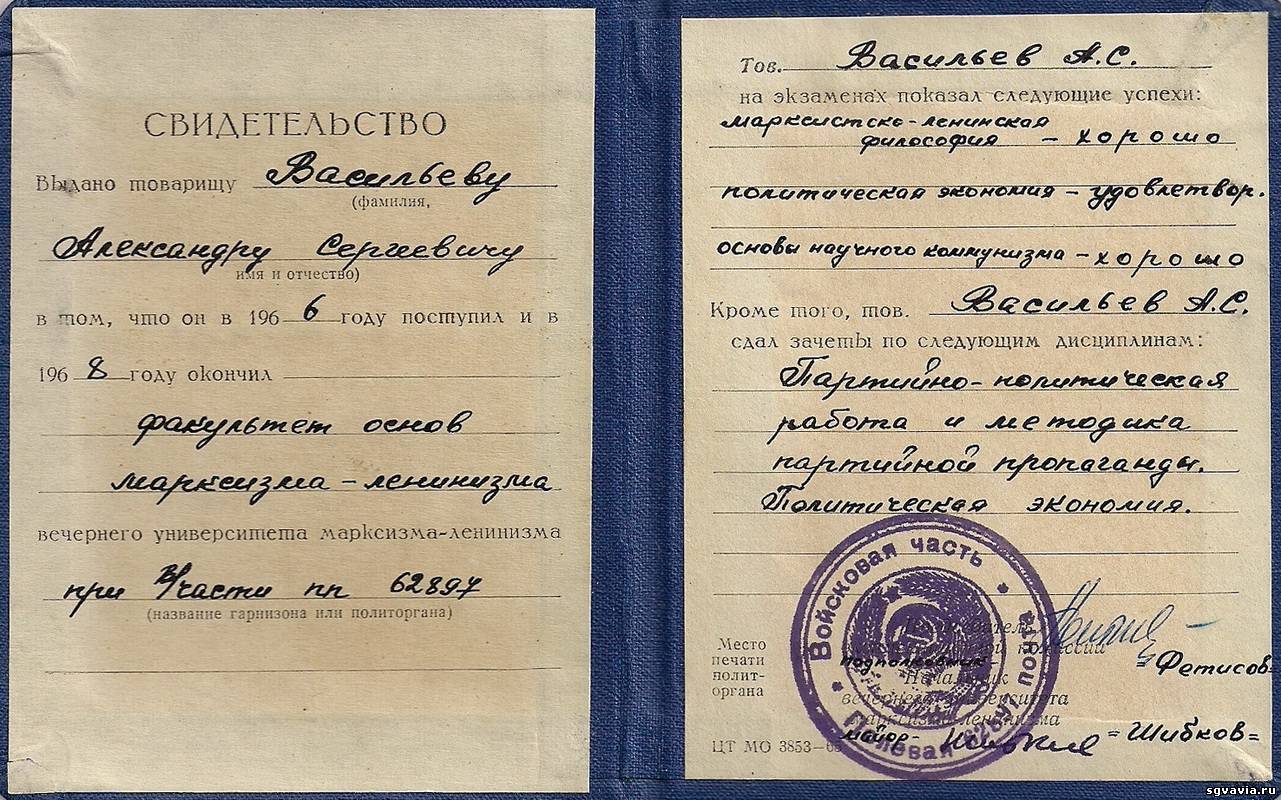 СВИДЕТЕЛЬСТВО
Выдано товарищу Васильеву
(фамилия,
Александру Сергеевичу
имя и отчество)
в том, что он в 1966 году поступил и в
1968 году окончил
факультет основ
марксизма-ленинизма
вечернего университета марксизма-ленинизма
при в/части пп 62897
(название гарнизона или политоргана)
Тов. Васильев А.С.
на экзаменах показал следующие успехи:
марксистско-ленинская
философия - хорошо
политическая экономия - удовлетвор.
основы научного коммунизма - хорошо
Кроме того, тов. Васильев А.С.
сдал зачеты по следующим дисциплинам:
Партийно-политическая
работа и методика
партийной пропаганды.
Политическая экономия.
Войсковая часть
Полевая почта
Место
печати
полит-
органа
подполковник =Фетисов=
Начальник
вечернего университета
марксизма-ленинизма
майор- =Шибков=
ЦТ МО 3853-
sgvavia.ru